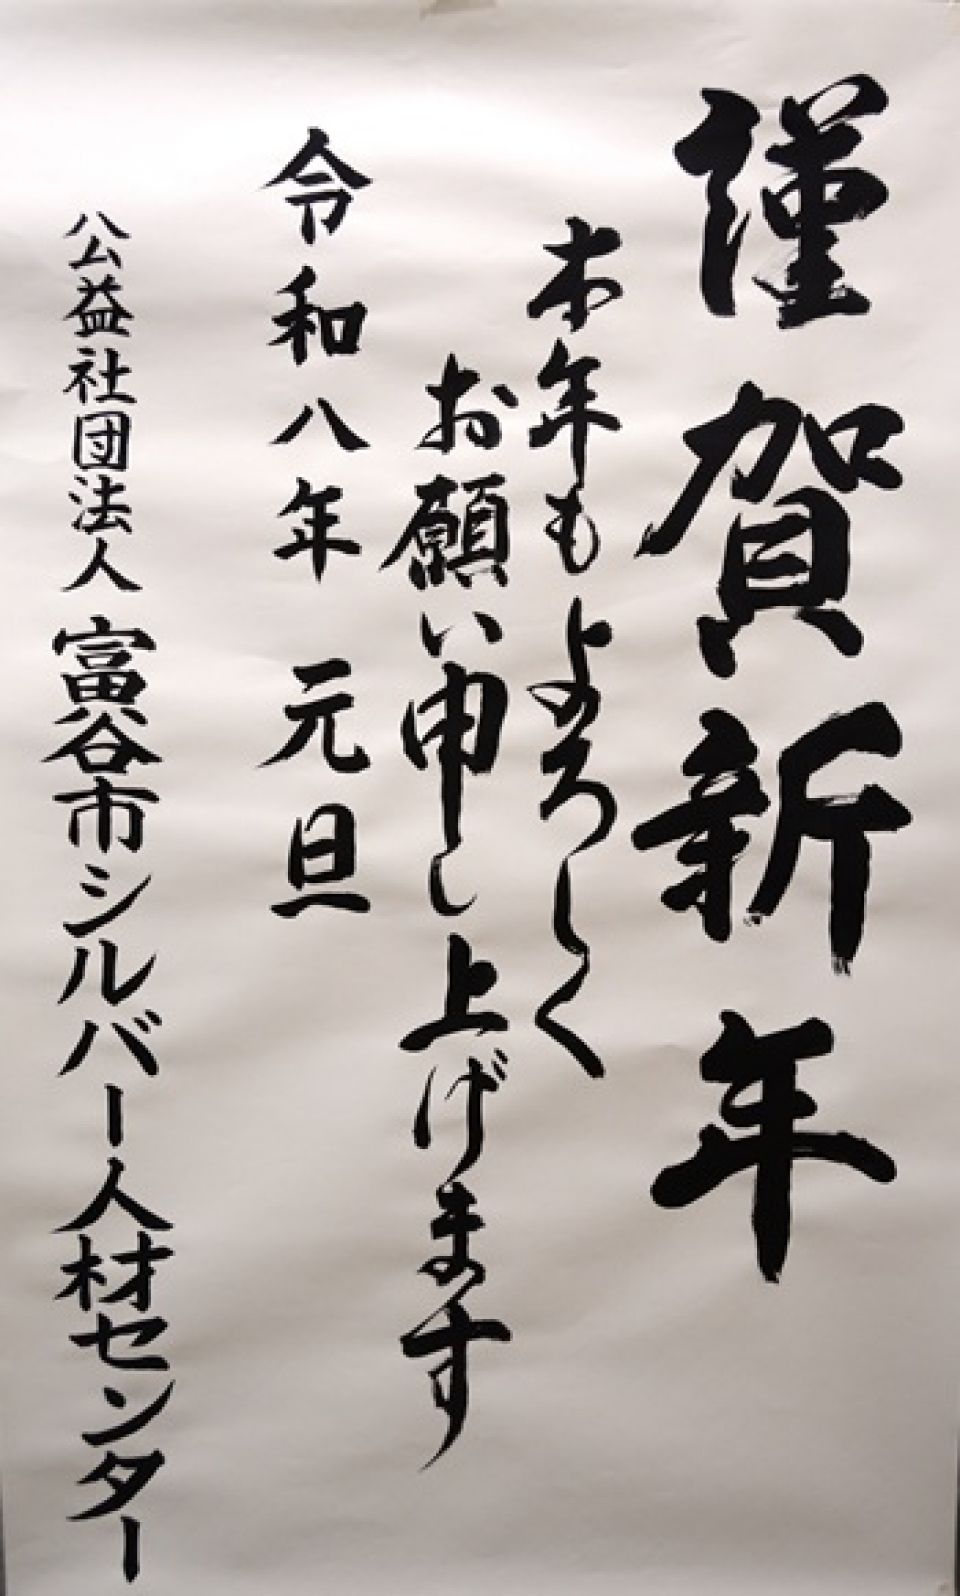 謹賀新年
本年もよろしく
お願い申し上げます
令和八年 元旦
公益社団法人 富谷市シルバー人材センター